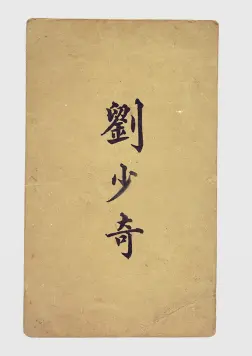 劉少奇